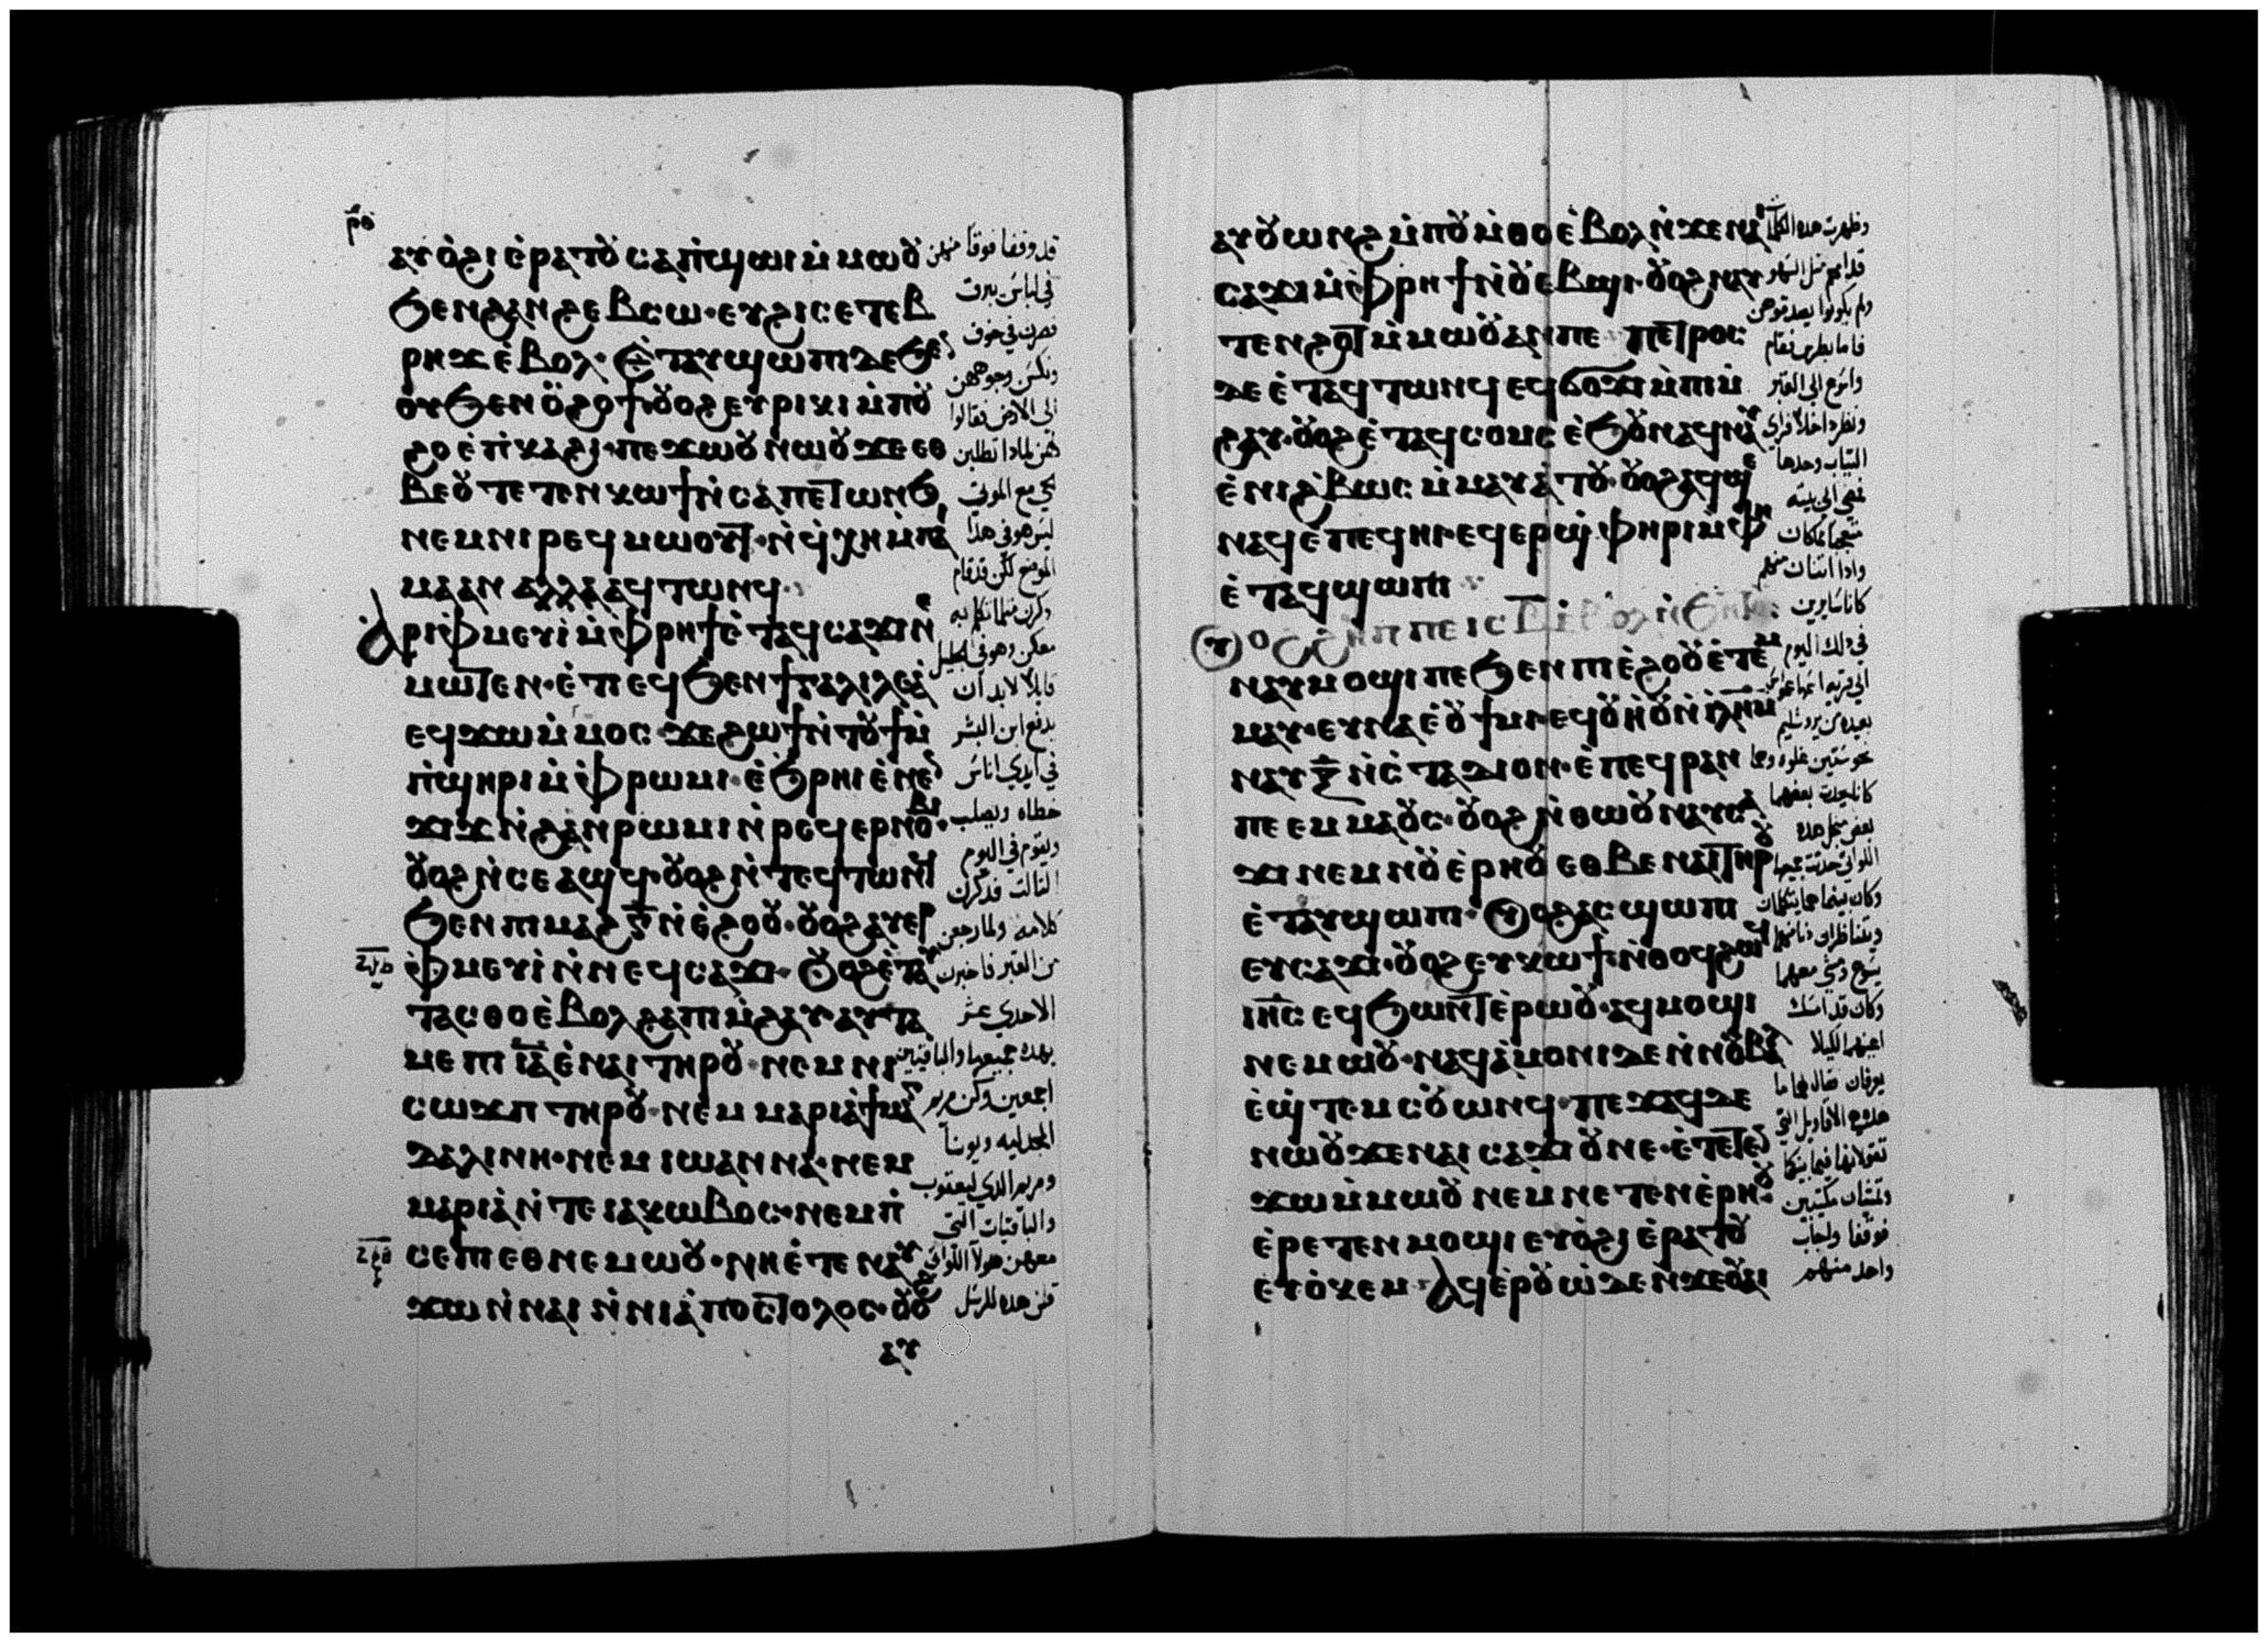 ⲣ̅ⲑ
ⲁⲩⲟ̀ϩⲓ ⲉ̀ⲣⲁⲧⲟⲩ ⲥⲁⲡ̀ϣⲱⲓ ⲙ̀ⲙⲱⲟⲩ
ϧⲉⲛϩⲁⲛϩⲉⲃⲥⲱ· ⲉⲩϩⲓⲥⲉⲧⲉⲃ
ⲣⲏϫ ⲉ̀ⲃⲟⲗ· ⲉ̀ⲧⲁⲩϣⲱⲡⲓ ⲇⲉ ϧⲉⲛ
ⲟⲩϧⲉⲛ ⲟⲩϩⲟϯ ⲟⲩⲟϩ ⲉⲩⲣⲓⲕⲓ ⲙ̀ⲡⲟⲩ
ϩⲟ ⲉ̀ⲡ̀ⲕⲁϩⲓ· ⲡⲉϫⲱⲟⲩ ⲛⲱⲟⲩ ϫⲉ ⲉⲑ
ⲃⲉⲟⲩ ⲧⲉⲧⲉⲛⲕⲱϯ ⲛ̀ⲥⲁ ⲡⲉⲧⲱⲛϧ
ⲛⲉⲙ ⲛⲓⲣⲉϥⲙⲱⲟⲩⲧ· ⲛ̀ϥ̀ⲭⲏ ⲙ̀ⲡⲁⲓ
ⲙⲁ ⲁⲛ ⲁⲗⲗⲁ ⲁϥⲧⲱⲛϥ·
ⲁⲣⲓⲫ̀ⲙⲉⲩⲓ̀ ⲙ̀ⲫ̀ⲣⲏϯ ⲉ̀ⲧⲁϥⲥⲁϫⲓ ⲛⲉ
ⲙⲱⲧⲉⲛ· ⲉ̀ⲧⲉϥϧⲉⲛ ϯⲅⲁⲗⲓⲗⲉⲁ̀
ⲉϥϫⲱ ⲙ̀ⲙⲟⲥ· ϫⲉ ϩⲱϯ ⲛ̀ⲧⲟⲩϯ ⲙ̀
ⲡ̀ϣⲏⲣⲓ ⲙ̀ⲫ̀ⲣⲱⲙⲓ· ⲉ̀ϧⲣⲏⲓ ⲉ̀ⲛⲉⲛ
ϫⲓϫ ⲛ̀ϩⲁⲛⲣⲱⲙⲓ ⲛ̀ⲣⲉϥⲉⲣⲛⲟⲃⲓ·
ⲟⲩⲟϩ ⲛ̀ⲥⲉⲁϣϥ· ⲟⲩⲟϩ ⲛ̀ⲧⲉϥⲧⲱⲛϥ
ϧⲉⲛ ⲡⲓⲙⲁϩ ⲅ̅ ⲛ̀ⲉ̀ϩⲟⲟⲩ· ⲟⲩⲟϩ ⲁⲩⲉⲣ
ⲫ̀ⲙⲉⲩⲓ̀ ⲛ̀ⲛⲉϥⲥⲁϫⲓ· ⲟⲩⲟϩ ⲉ̀ⲧⲁⲩ
ⲧⲁⲥⲑⲟ ⲉ̀ⲃⲟⲗ ϩⲁ ⲡⲓⲙ̀ϩⲁⲩ ⲁⲩⲧⲁ
ⲙⲉ ⲡⲓ ⲓ̅ⲁ̅ ⲉ̀ⲛⲁⲓ ⲧⲏⲣⲟⲩ· ⲛⲉⲙ ⲛⲓ
ⲥⲱϫⲡ ⲧⲏⲣⲟⲩ· ⲛⲉⲙ ⲙⲁⲣⲓⲁ̀ ϯⲙⲁⲅ
ⲇⲁⲗⲓⲛⲏ· ⲛⲉⲙ ⲓⲱⲁⲛⲛⲁ· ⲛⲉⲙ
ⲙⲁⲣⲓⲁ̀ ⲛ̀ⲧⲉ ⲓⲁⲕⲱⲃⲟⲥ· ⲛⲉⲙ ⲡ̀
ⲥⲉⲡⲓ ⲉⲑⲛⲉⲙⲱⲟⲩ· ⲛⲏ ⲉ̀ⲧⲉ ⲛⲁⲩ
ϫⲱ ⲛ̀ⲛⲁⲓ ⲛ̀ⲛⲓⲁ̀ⲡⲟⲥⲧⲟⲗⲟⲥ· ⲟⲩⲟϩ
ⲁⲩ
قد وقفا فوقا منهن
في لباس يبرق
فصرن في خوف
ونكسن وجوههن
الي الارض فقالوا
لهن لمادا تطلبن
الحي مع الموتي
ليس هو في هذا
الموضع لكن قد قام
دكرن مثلما تكلم به
معكن وهو في الجليل
قايلا لا بد ان
يدفع ابن البشر
في ايدي اناس
خطاه ويصلب
ويقوم في اليوم
التالت فدكرن
كلامه ولما رجعن
من القبر فاخبرن
الاحدي عشر
بهده جميعها والباقيين
اجمعين وكن مريم
المجدليه ويونا
ومريم الدي ليعقوب
والباقيات التي
معهن هولا اللواتي
قلن هده للرسل
ⲁⲩⲟⲩⲱⲛϩ ⲙ̀ⲡⲟⲩⲙ̀ⲑⲟ ⲉ̀ⲃⲟⲗ ⲛ̀ϫⲉ ⲛⲁⲓ
ⲥⲁϫⲓ ⲙ̀ⲫ̀ⲣⲏϯ ⲛ̀ⲟⲩⲉⲃϣⲓ· ⲟⲩⲟϩ ⲛⲁⲩ
ⲧⲉⲛϩⲟⲧ ⲙ̀ⲙⲱⲟⲩ ⲁⲛ ⲡⲉ· ⲡⲉⲧⲣⲟⲥ
ⲇⲉ ⲉ̀ⲧⲁϥⲧⲱⲛϥ ⲉϥϭⲟϫⲓ ⲙ̀ⲡⲓⲙ̀
ϩⲁⲩ· ⲟⲩⲟϩ ⲉ̀ⲧⲁϥⲥⲟⲙⲥ ⲉ̀ϧⲟⲩⲛ ⲁϥⲛⲁⲩ
ⲉ̀ⲛⲓϩ̀ⲃⲱⲥ ⲙ̀ⲙⲁⲩⲁ̀ⲧⲟⲩ· ⲟⲩⲟϩ ⲁϥϣⲉ
ⲛⲁϥ ⲉ̀ⲡⲉϥⲏⲓ· ⲉϥⲉⲣϣ̀ⲫⲏⲣⲓ ⲙ̀ⲫⲏ
ⲉ̀ⲧⲁϥϣⲱⲡⲓ
ⲟⲩⲟϩ ϩⲏⲡⲡⲉ ⲓⲥ ⲃ̅ ⲉ̀ⲃⲟⲗ ⲛ̀ϧⲏⲧⲟⲩ
ⲛⲁⲩⲙⲟϣⲓ ⲡⲉ ϧⲉⲛ ⲡⲓⲉ̀ϩⲟⲟⲩ ⲉ̀ⲧⲉⲙ
ⲙⲁⲩ· ⲉⲩⲛⲁ ⲉ̀ⲟⲩϯⲙⲓ ⲉϥⲟⲩⲏⲟⲩ ⲛ̀ⲓ̅ⲗ̅ⲏ̅ⲙ̅
ⲛⲁⲩ ⲝ̅ ⲛ̀ⲥ̀ⲧⲁⲇⲓⲟⲛ· ⲉ̀ⲡⲉϥⲣⲁⲛ
ⲡⲉ ⲉⲙⲙⲁⲟⲩⲥ· ⲟⲩⲟϩ ⲛ̀ⲑⲱⲟⲩ ⲛⲁⲩⲥⲁ
ϫⲓ ⲛⲉⲙ ⲛⲟⲩⲉ̀ⲣⲏⲟⲩ ⲉⲑⲃⲉ ⲛⲁⲓ ⲧⲏⲣⲟⲩ
ⲉ̀ⲧⲁⲩϣⲱⲡⲓ· ⲟⲩⲟϩ ⲁⲥϣⲱⲡⲓ
ⲉⲩⲥⲁϫⲓ· ⲟⲩⲟϩ ⲉⲩⲕⲱϯ· ⲛ̀ⲑⲟϥ ϩⲱϥ
ⲓⲏ̅ⲥ̅ ⲉϥϧⲱⲛⲧ ⲉ̀ⲣⲱⲟⲩ· ⲁϥⲙⲟϣⲓ
ⲛⲉⲙⲱⲟⲩ· ⲛⲁϥⲁ̀ⲙⲟⲛⲓ ⲇⲉ ⲛ̀ⲛⲟⲩⲃⲁⲗ
ⲉ̀ϣ̀ⲧⲉⲙⲥⲟⲩⲱⲛϥ· ⲡⲉϫⲁϥ ⲇⲉ
ⲛⲱⲟⲩ ϫⲉ ⲛⲁⲓ ⲥⲁϫⲓ ⲟⲩ ⲛⲉ· ⲉ̀ⲧⲉⲧⲉⲛ
ϫⲱ ⲙ̀ⲙⲱⲟⲩ ⲛⲉⲙ ⲛⲉⲧⲉⲛⲉ̀ⲣⲏⲟⲩ
ⲉ̀ⲣⲉⲧⲉⲛⲙⲟϣⲓ ⲉⲩⲟ̀ϩⲓ ⲉ̀ⲣⲁⲧⲟⲩ
ⲉⲩⲟ̀ⲕⲉⲙ· ⲁϥⲉ̀ⲣⲟⲩⲱ̀ ⲇⲉ ⲛ̀ϫⲉ ⲟⲩⲁⲓ
وظهرت هده الكلمات
قدامهم مثل السهو
ولم يكونوا يصدقوهن
فاما بطرس فقام
واسرع الي القبر
ونظر داخلا فراي
التياب وحدها
فمضي الي بيته
متعجبا مما كان
وادا اتنان منهم
كانا سايرين
في دلك اليوم
الي قريه اسمها عمواس
بعيده من يروشليم
نحو ستين غلوه وهما
كانا يحدت بعضهما
بعض من اجل هده
اللواتي حدتت جميعها
وكان بينما هما يتكلمان
ويتناظران دنا منهما
يسوع ومشي معهما
وكان قد امسك
اعينهما لكيلا
يعرفان فقال لهما ما
هده الاقاويل التي
تقولانها فيما بينكما
وتمشيان مكتيبين
فوقفا واجاب
واحد منهم